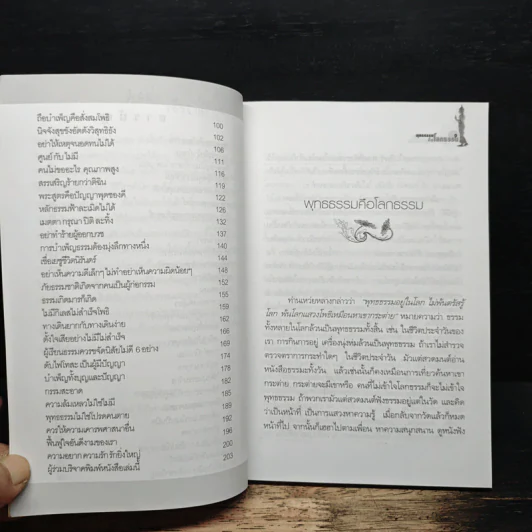 ถือบำเพ็ญคือสั่งสมโพธิ 100
นิจจังสุขขังอัตตังวิสุทธิจัง 102
อย่าให้เหตุจนอดทนไม่ได้ 106
ศูนย์กับไม่มี 111
คนไม่ขออะไร คุณภาพสูง 116
สรรเสริญร้ายกว่าติฉิน 119
พระสูตรคือปัญญาพุทธองค์ 122
หลักธรรมฟ้าละเมิดไม่ได้ 126
เมตตา กรุณา ปิติ ละทิ้ง 132
อย่าทำร้ายผู้ออกบวช 137
การบำเพ็ญธรรมต้องมุ่งลึกทางหนึ่ง 140
เชื่อเซยชีวิตนิรันดร์ 144
อย่าเห็นความดีเล็กๆ ไม่ทำอย่าเห็นความผิดน้อยๆ 148
ภัยธรรมชาติเกิดจากคนเป็นผู้ก่อกรรม 152
ธรรมเกิดมารก็เกิด 155
ไม่มีกิเลสไม่สำเร็จโพธิ 159
ทางเดินยากกับทางเดินง่าย
ตั้งใจเสียอย่างไม่มีไม่สำเร็จ
ผู้เรียนธรรมควรขจัดนิสัยไม่ดี 6 อย่าง
ดับไฟโทสะ เป็นผู้มีปัญญา
บำเพ็ญทั้งบุญและปัญญา
กรรมสะอาด
ความล้มเหลวไม่ใช่ไม่มี
พุทธธรรมไม่ใช่โปรดคนตาย
ควรให้ความเคารพศาสนาอื่น 196
ฟื้นฟูใจอันดีงามของเรา 200
ความอยาก ความรัก รักยิ่งใหญ่ 203
ผู้ร่วมบริจาคพิมพ์หนังสือเล่มนี้
พุทธธรรมคือโลกธรรม
ท่านเหว่ยหล่างกล่าวว่า "พุทธธรรมอยู่ในโลก ไม่พ้นตรัสรู้
โลก พ้นโลกแสวงโพธิเหมือนหาเขากระต่าย" หมายความว่า ธรรม
ทั้งหลายในโลกล้วนเป็นพุทธธรรมทั้งสิ้น เช่น ในชีวิตประจำวันของ
เรา การกินการอยู่ เครื่องนุ่งห่มล้วนเป็นพุทธธรรม ถ้าเราไม่สำรวจ
ตรวจตราการกระทำใดๆ ในชีวิตประจำวัน มัวแต่สวดมนต์อ่าน
หนังสือธรรมะทั้งวัน แล้วเช่นนั้นก็คงเหมือนการเที่ยวค้นหาเขา
กระต่าย กระต่ายจะมีเขาหรือ คนที่ไม่เข้าใจโลกธรรมก็จะไม่เข้าใจ
พุทธธรรม ถ้าพวกเรามัวแต่สวดมนต์ฟังธรรมอยู่แต่ในวัด และคิด
ว่าเป็นหน้าที่ เป็นการแสวงหาความรู้ เมื่อกลับจากวัดแล้วก็หมด
หน้าที่ไป จากนั้นก็เฮฮาไปตามเพื่อน หาความสนุกสนาน ดูหนังฟัง